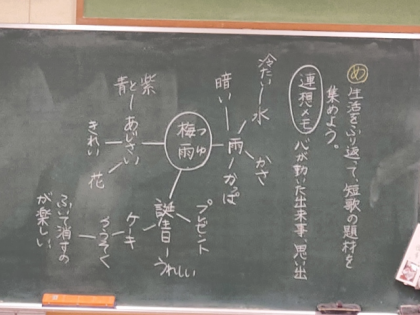 め 生活をふり返って、短歌の題材を
集めよう。
連想メモ 心が動いた出来事、思い出
冷たい
水
暗い
雨
かさ
かっぱ
梅雨
つゆ
紫
青
と
あじさい
きれい
花
誕生日
プレゼント
うれしい
ケーキ
ろうそく
ふいて消すの
が楽しい